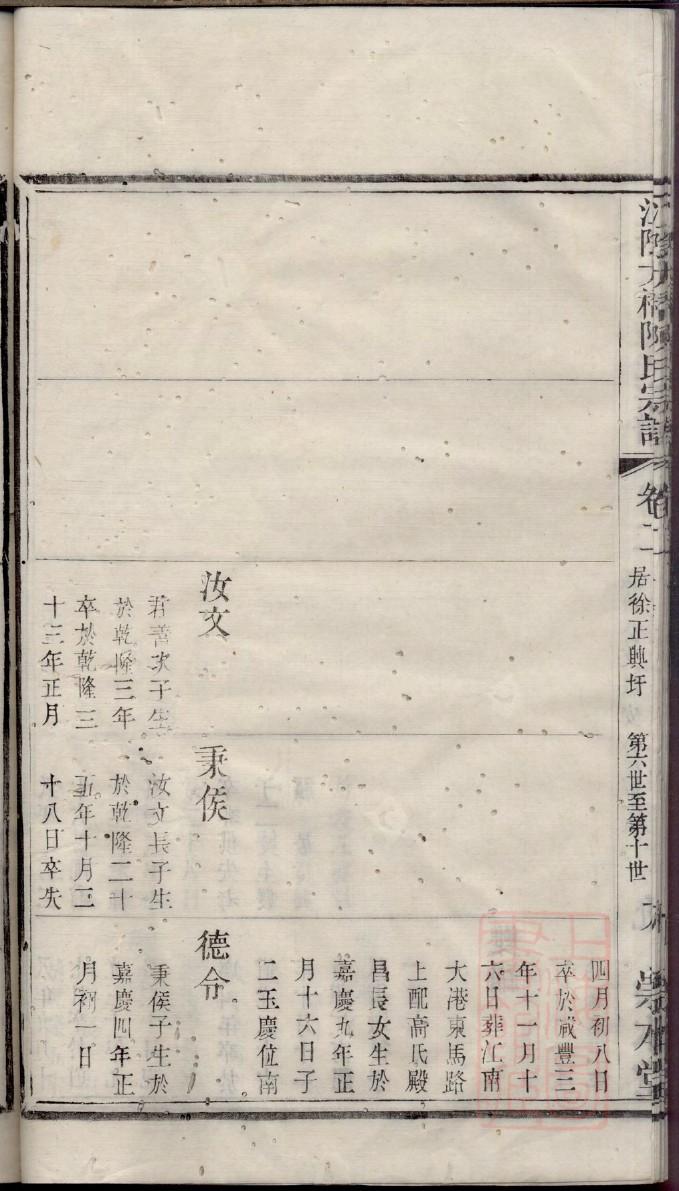 江陰方橋陳氏宗譜
卷二
居徐正興圩
第六世至第十世
崇本堂
四月初八日
卒於咸豐三
年十一月十
六日葬江南
大港東馬路
上配高氏殿
昌長女生於
嘉慶九年正
月十六日子
二玉慶位南
汝文
君善次子生
於乾隆三年
卒於乾隆三
十三年正月
秉侯
汝文長子生
於乾隆二十
五年十月三
十八日卒失
德令
秉侯子生於
嘉慶四年正
月初一日